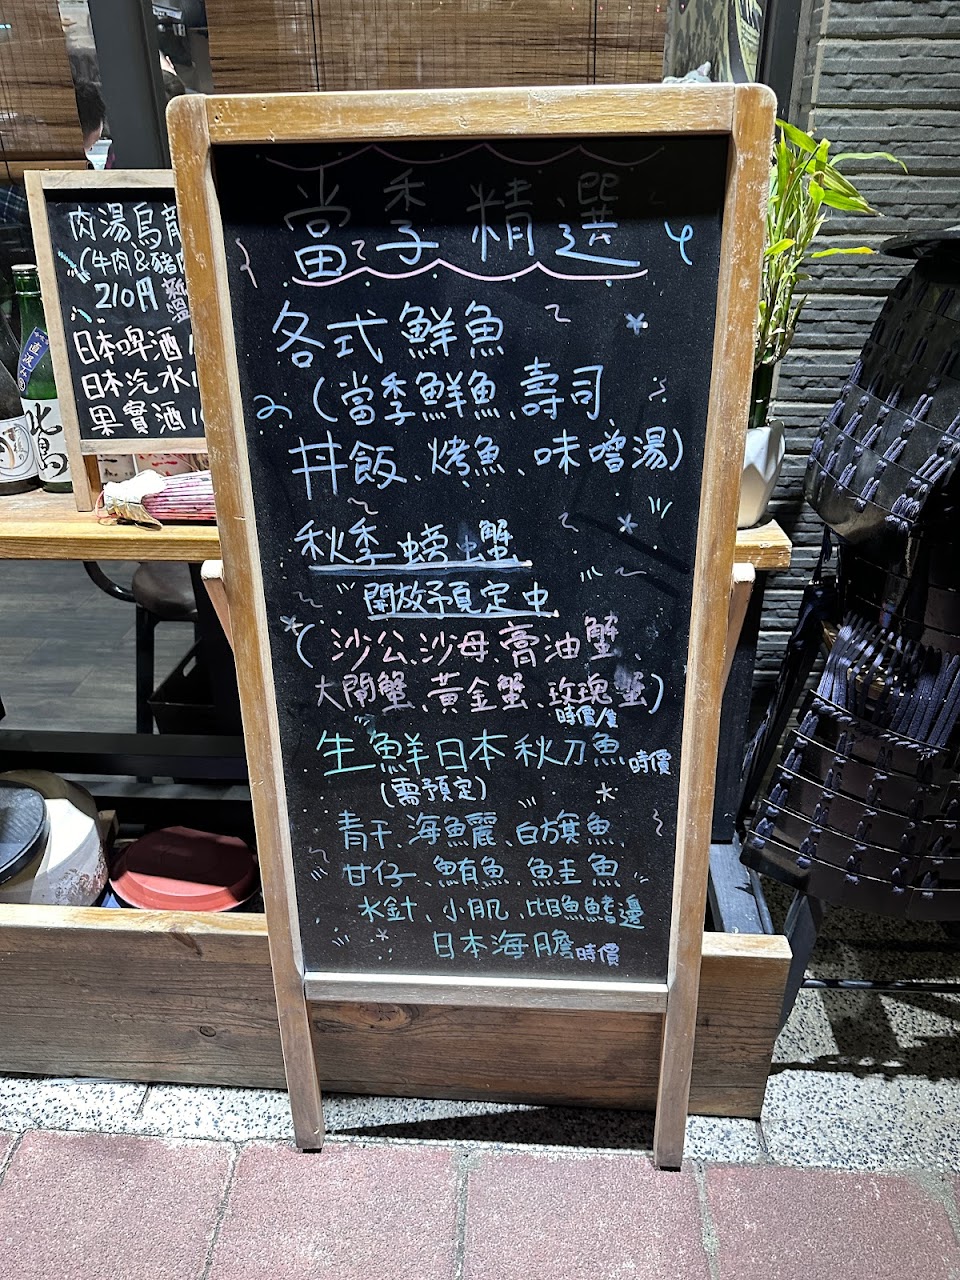 當季精選
各式鮮魚
(當季鮮魚、壽司
丼飯、烤魚、味噌湯)
秋季螃蟹
開放預定中
(沙公、沙母、膏油蟹、
大閘蟹、黃金蟹、玫瑰蟹)
時價/隻
生鮮日本秋刀魚 時價
(需預定)
青干、海魚麗、白旗魚、
甘仔、鮪魚、鮭魚、
水針、小肌、比目魚鰭邊
日本海膽 時價
肉湯烏龍
(牛肉&豬肉
210円
日本啤酒
日本汽水
果實酒